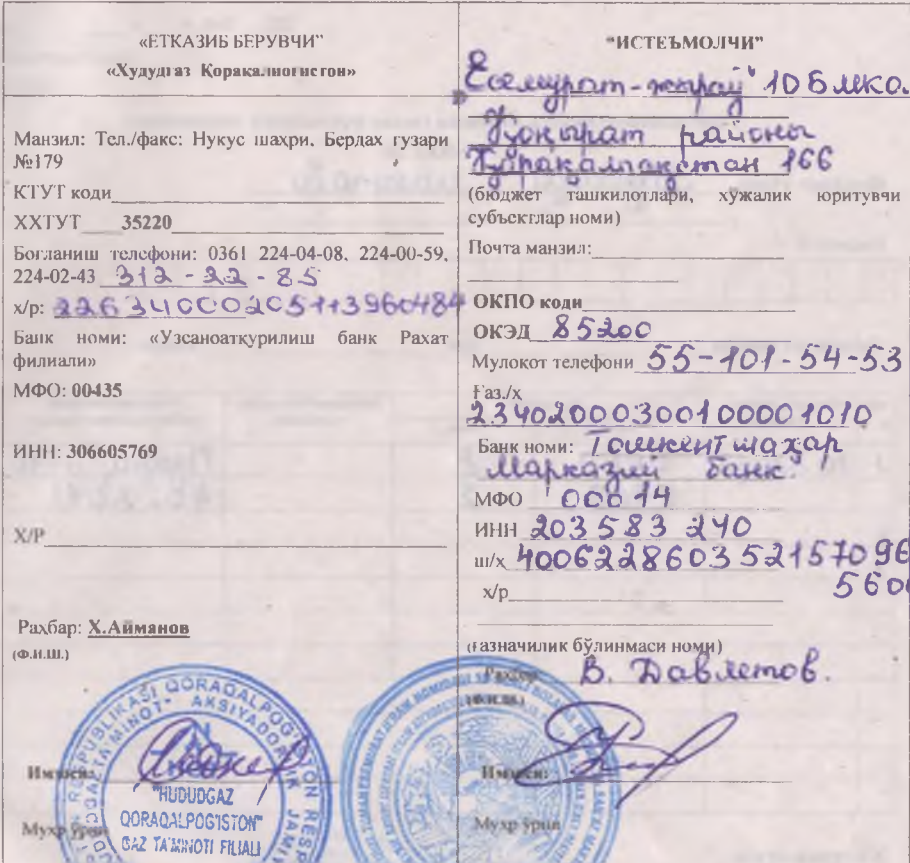 «ЕТКАЗИБ БЕРУВЧИ"
«Худудгаз Қорақалпоғистон»
Манзил: Тел./факс: Нукус шаҳри, Бердах гузари
№179
КТУТ коди
ХХТУТ 35220
Богланиш телефони: 0361 224-04-08, 224-00-59,
224-02-43 312-22-85
х/р: 22634000205113960484
Банк номи: «Узсаноатқурилиш банк Рахат
филиали»
МФО: 00435
ИНН: 306605769
Х/Р
Раҳбар: Х.Айманов
(Ф.И.Ш.)
Имзоси:
Муҳр ўрни
"HUDUDGAZ
QORAQALPOG'ISTON"
GAZ TA'MINOTI FILIALI
"ИСТЕЪМОЛЧИ"
Есемурат-жырау" 10 Б мко
Қоңырат районы
166
(бюджет ташкилотлари, хўжалик юритувчи
субъектлар номи)
Почта манзил:
ОКПО коди
ОКЭД 85200
Мулоқот телефони 55-101-54-53
Ғаз./х
23402000300100001010
Банк номи: Тошкент шаҳар
Марказий банк.
МФО 00014
ИНН 203 583 240
ш/х 400622860352157096
560
х/р
(ғазначилик бўлинмаси номи)
Раҳбар В. Давлетов.
(Ф.И.Ш.)
Имзоси:
Муҳр ўрни